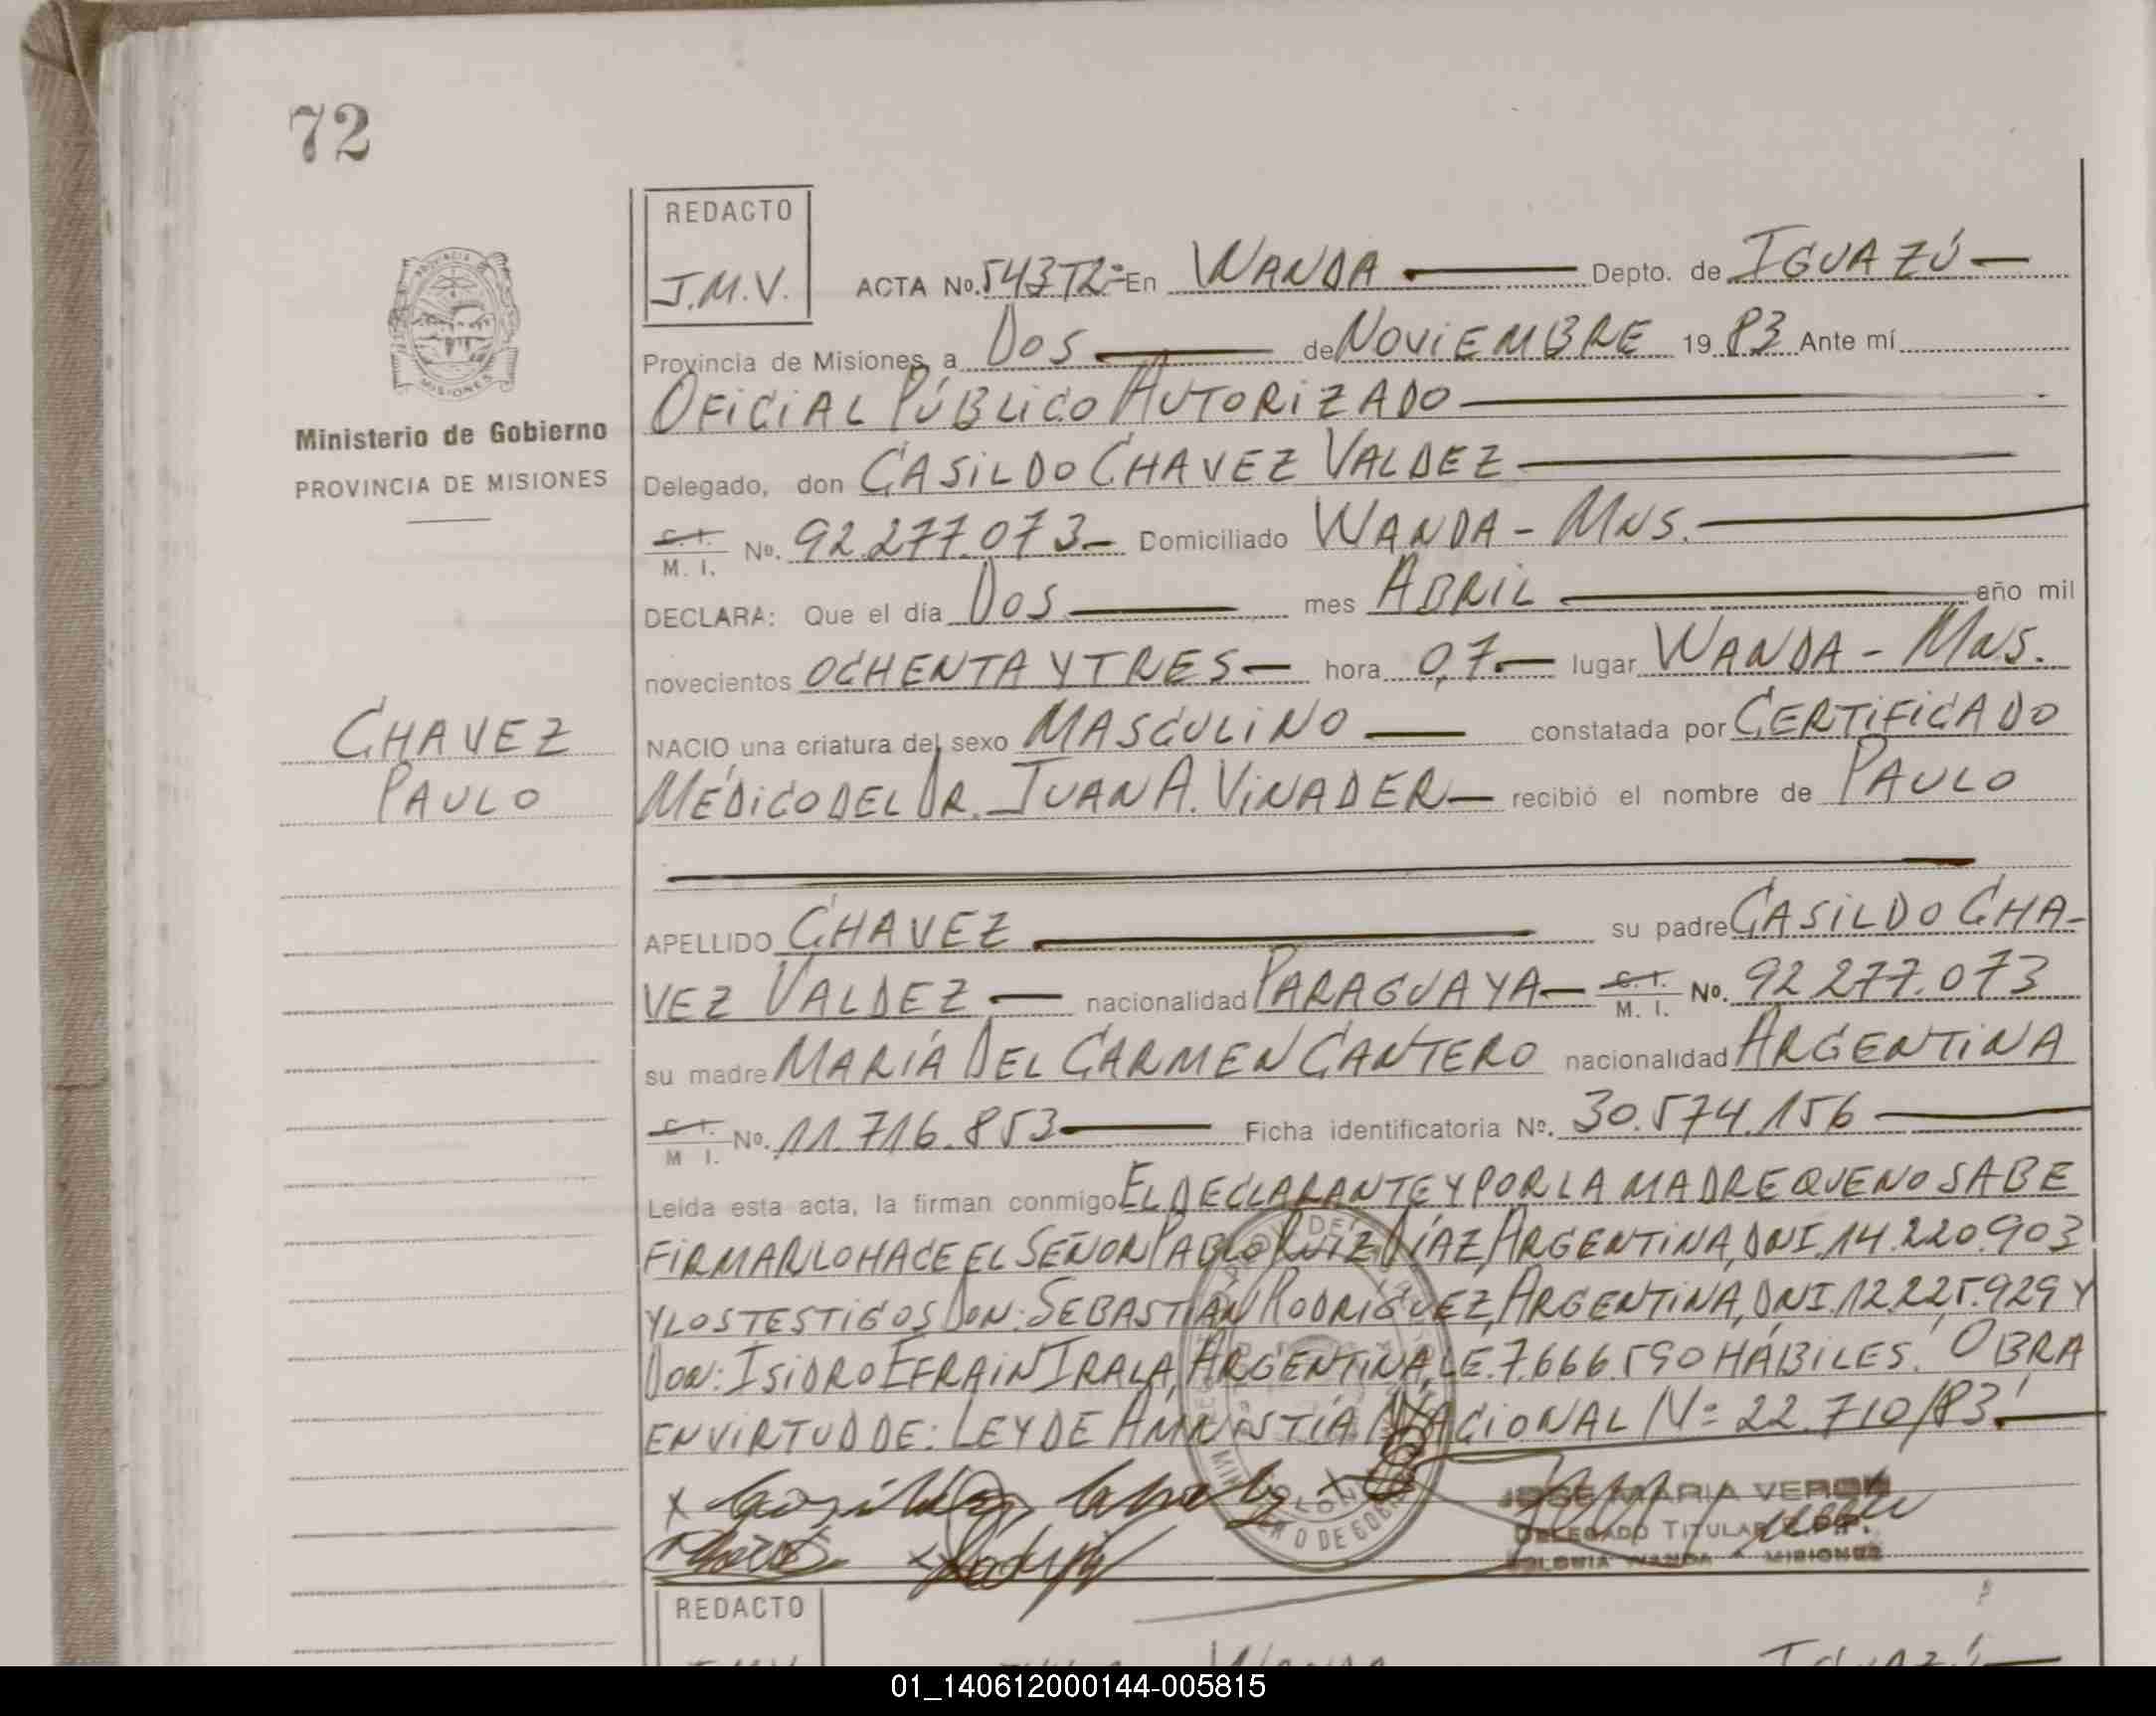 72
REDACTO
J.M.V.
ACTA No. 543T2= En WANDA Depto. de IGUAZÚ
Provincia de Misiones, a DOS de NOVIEMBRE 19 83 Ante mí
OFICIAL PÚBLICO AUTORIZADO
Ministerio de Gobierno
PROVINCIA DE MISIONES
Delegado, don CASILDO CHAVEZ VALDEZ
C. I. M. I. No. 92.277.073 Domiciliado WANDA - MNS.
DECLARA: Que el día DOS mes ABRIL año mil
novecientos OCHENTA Y TRES hora 0,7 lugar WANDA - MNS.
CHAVEZ
PAULO
NACIO una criatura del sexo MASCULINO constatada por CERTIFICADO
MÉDICO DEL DR. JUAN A. VINADER recibió el nombre de PAULO
APELLIDO CHAVEZ su padre CASILDO CHA-
VEZ VALDEZ nacionalidad PARAGUAYA C. I. M. I. No. 92 277.073
su madre MARÍA DEL CARMEN CANTERO nacionalidad ARGENTINA
C. I. M I. No. 11.716.853 Ficha identificatoria No. 30.574.156
Leída esta acta, la firman conmigo EL DECLARANTE Y POR LA MADRE QUE NO SABE
FIRMAR LO HACE EL SEÑOR PABLO RUIZ DÍAZ, ARGENTINA, DNI. 14.220.903
Y LOS TESTIGOS DON: SEBASTIAN RODRIGUEZ, ARGENTINA, DNI. 12.225.929 Y
DON: ISIDRO EFRAIN IRALA, ARGENTINA, LE. 7.666.590 HÁBILES. OBRA
EN VIRTUD DE: LEY DE AMNISTÍA NACIONAL Nº 22.710/83.
JOSE MARIA VERON
DELEGADO TITULAR
COLONIA WANDA - MISIONES
REDACTO
01_140612000144-005815